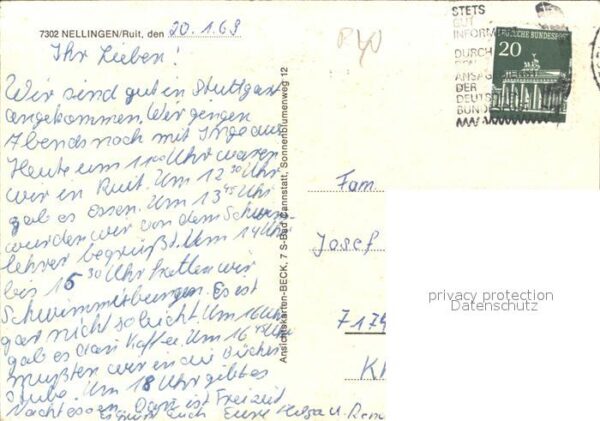 7302 NELLINGEN/Ruit, den 20.1.69
Ihr Lieben!
Wir sind gut in Stuttgart
angekommen. Wir gingen
Abends noch mit Ingo aus
Heute um 11 00 Uhr waren
wir in Ruit. Um 12 30 Uhr
gab es Essen. Um 13 45 Uhr
wurden wir von dem Schwimm-
lehrer begrüßt. Um 14 Uhr
bis 15 30 Uhr hatten wir
Schwimmübungen. Es ist
gar nicht so leicht. Um 16 Uhr
gab es dan Kaffee. Um 16 45 Uhr
mußten wir in die Bücher
stube. Um 18 Uhr gibt es
Nachtessen. Dann ist Freizeit
Es grüßt Euch Eure Helga u.
Ansichtskarten-BECK, 7 S-Bad Cannstatt, Sonnenblumenweg 12
STETS
GUT
INFORM
DURCH
ANSAGE
DER
DEUTSCHEN
BUND
DEUTSCHE BUNDESPOST
20
Fam
Josef
717
privacy protection
Datenschutz